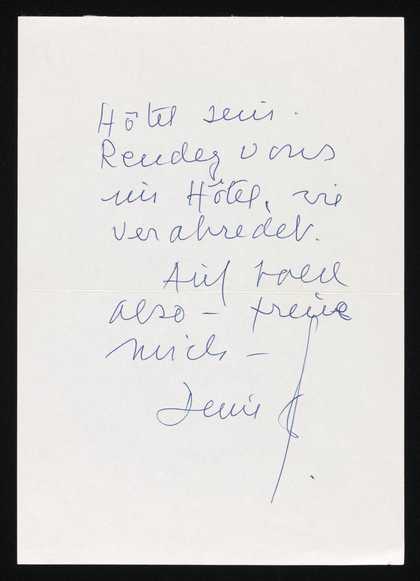 Hôtel sein.
Rendez vous
im Hôtel, wie
verabredet.
Auf bald
also – freue
mich –
Denis